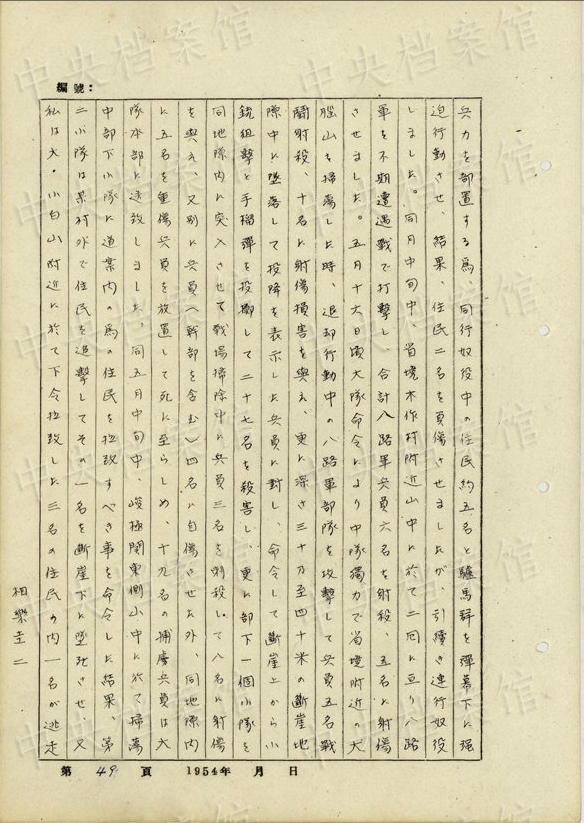 編號：
兵力を部置する為、同行奴役中の住民約五名と騾馬群を彈幕下に强
迫行動させ、結果、住民二名を負傷させましたが、引續き連行奴役
しました。同月中旬中、省境木作村附近山中に於て二回に亘り八路
軍を不期遭遇戰で打擊し、合計八路軍兵員六名を射殺、五名に射傷
させました。五月十六日頃大隊命令により中隊獨力で省境附近の大
腦山を掃蕩した時、退却行動中の八路軍部隊を攻擊して兵員五名戰
鬪射殺、十名に射傷損害を與え、更に深さ三十乃至四十米の斷崖地
隙中に墜落して投降を表示した兵員に對し、命令して斷崖上から小
銃狙擊と手榴彈を投擲して二十七名を殺害し、更に部下一個小隊を
同地隙内に突入させて戰場掃除中に兵員三名を刺殺し、て八名に射傷
を與え、又別に兵員（幹部を含む）四名に自傷させた外、同地隙内
に五名を重傷兵員を放置して死に至らしめ、十九名の捕虜兵員は大
隊本部に送致しました。同五月中旬中、峻極関東側山中に於て掃蕩
中部下小隊に道案内の為の住民を拉致すべき事を命令した結果、第
二小隊は某村外で住民を追擊してその一名を斷崖下に墜死させ、又
私は大・小白山附近に於て下令拉致した三名の住民の内一名が逃走
相樂圭二
第 49 頁 1954年 月 日
中央档案馆